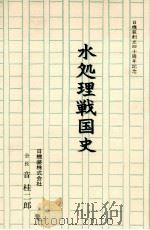 日機装創立四十周年記念
水処理戦国史
日機装株式会社
会長 音桂二郎